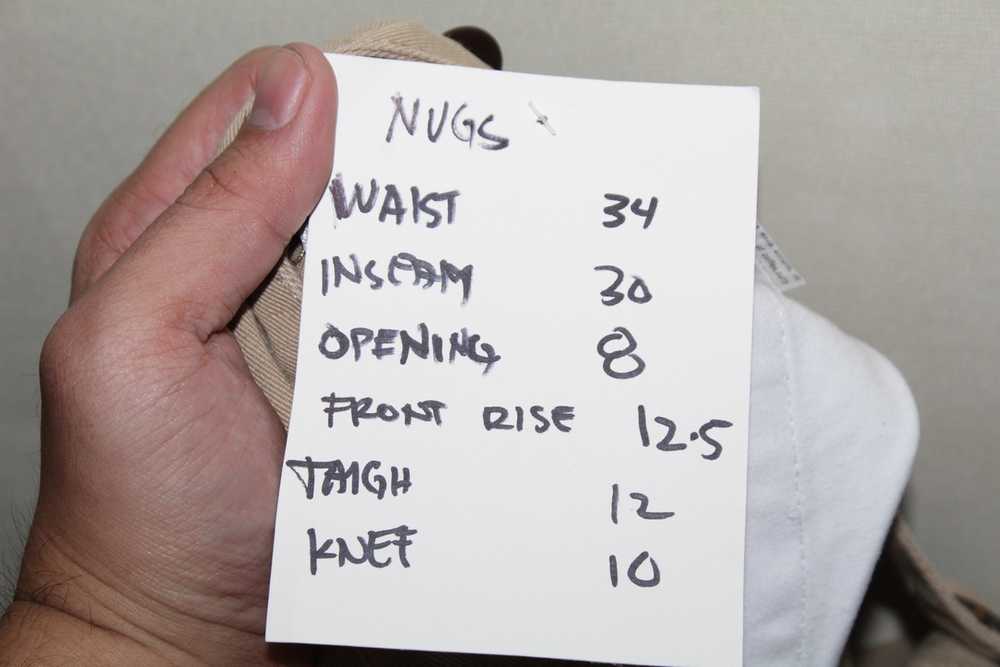 NUGS
WAIST 34
INSEAM 30
OPENING 8
FRONT RISE 12.5
THIGH 12
KNEE 10